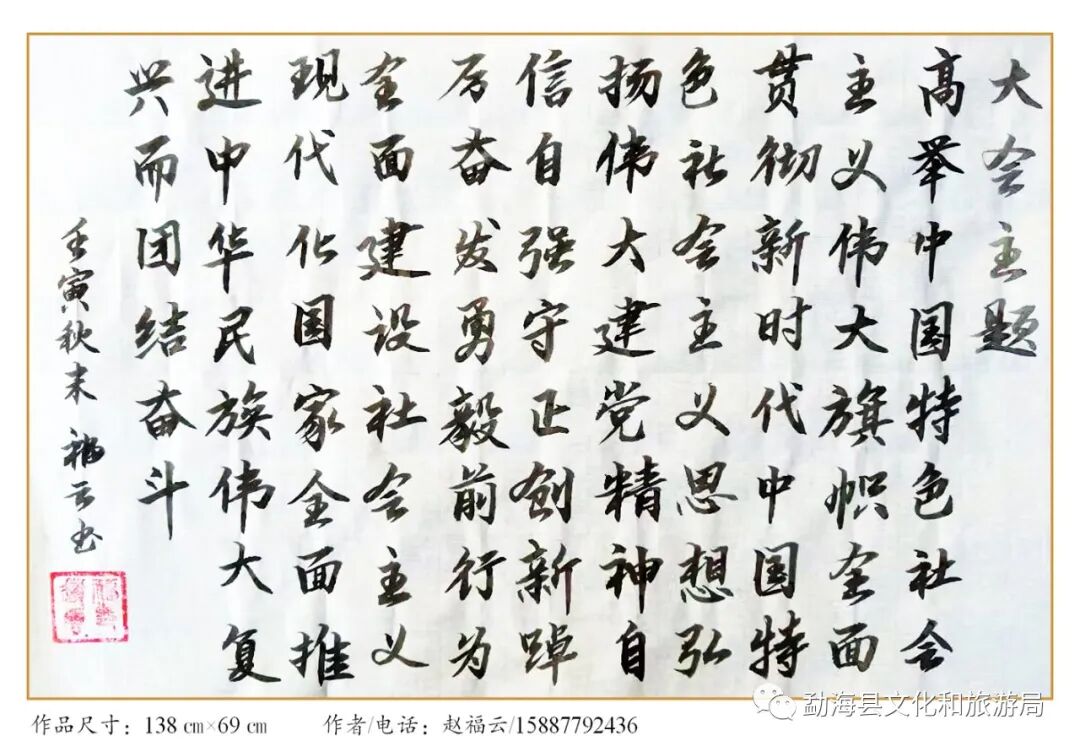 大会主题
高举中国特色社会
主义伟大旗帜全面
贯彻新时代中国特
色社会主义思想弘
扬伟大建党精神自
信自强守正创新踔
厉奋发勇毅前行为
全面建设社会主义
现代化国家全面推
进中华民族伟大复
兴而团结奋斗
壬寅秋末 福云书
勐海县文化和旅游局
作品尺寸：138 cm×69 cm 作者/电话：赵福云/15887792436